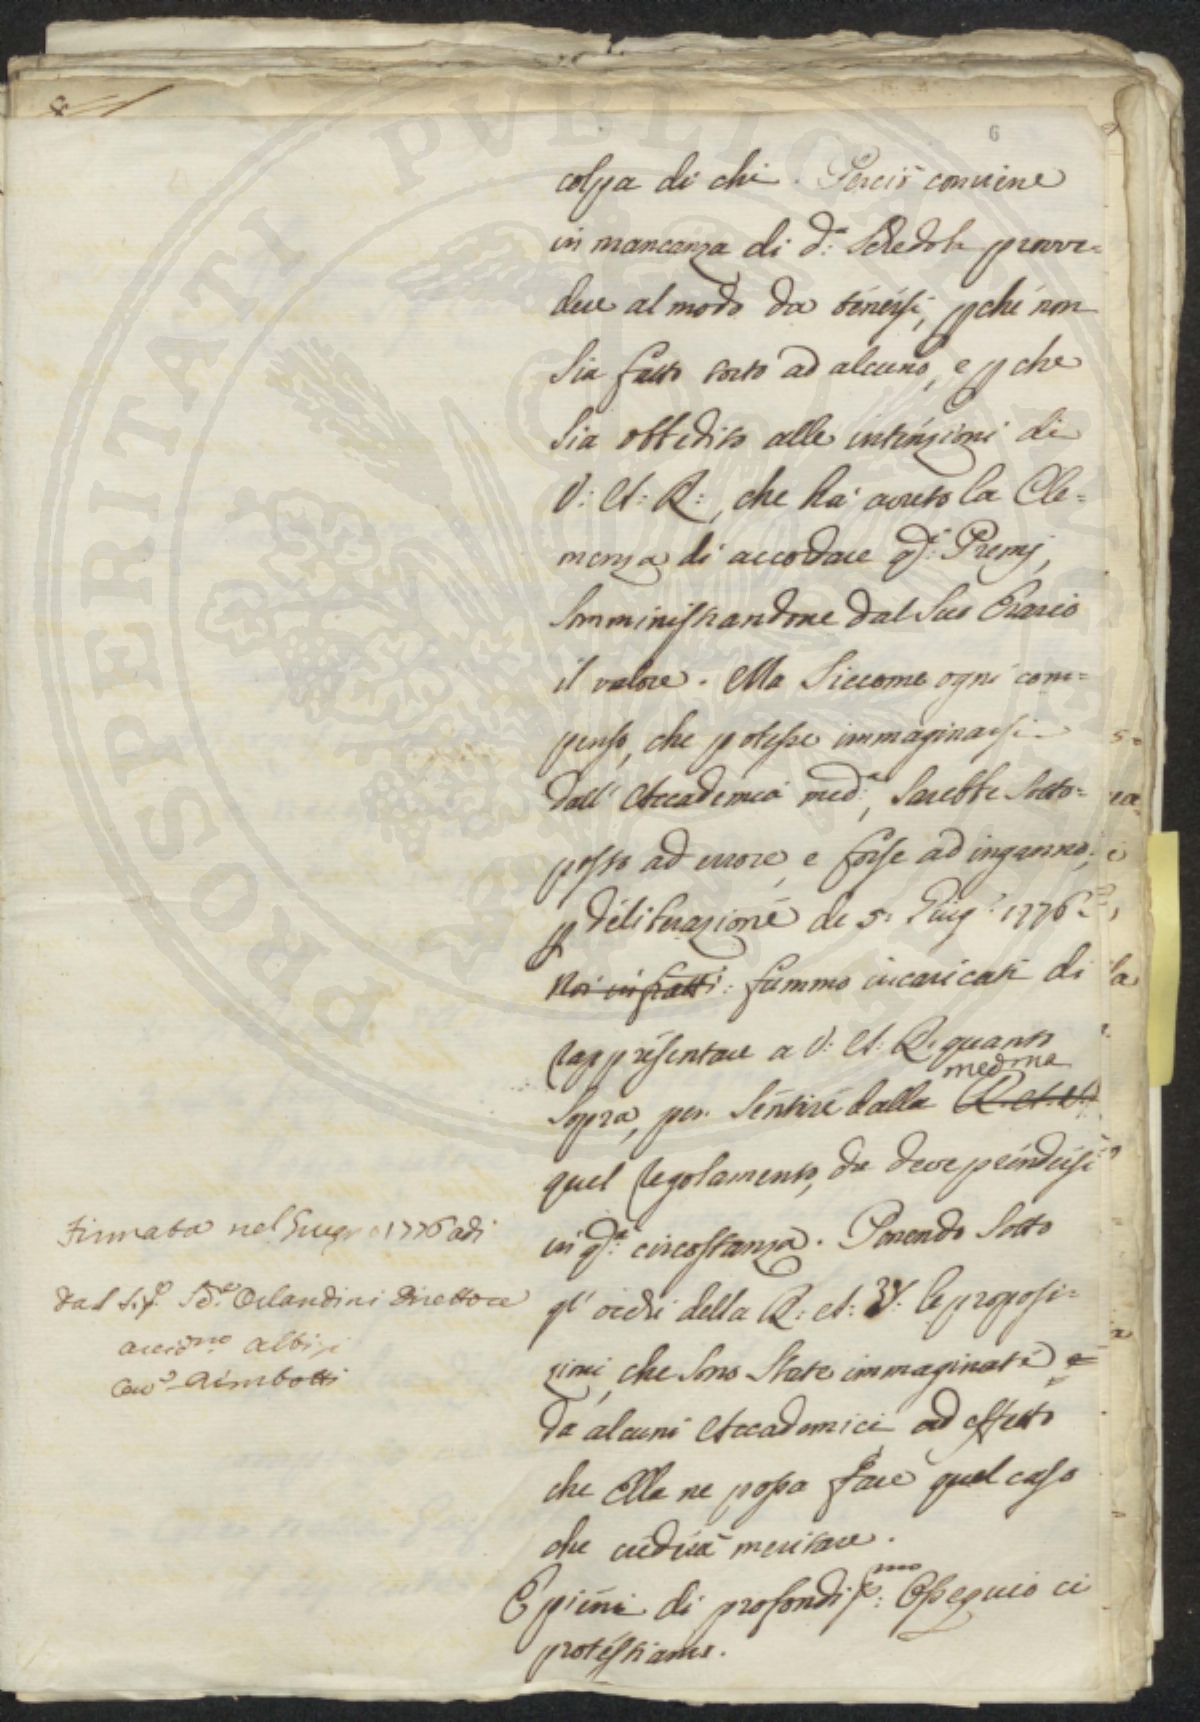 6
colpa di chi. Perciò conviene
in mancanza di d.ª Schedola provve=
dere al modo da tenersi, pchè non
sia fatto torto ad alcuno, e p che
sia obbedito alle intenzioni di
V: A: R:, che hà avuto la Cle=
menza di accordare q.ti Premj,
somministrandone dal Suo Erario
il valore. Ma siccome ogni com=
penso, che potesse immaginarsi
dall' Accademia med.ª, sarebbe sotto=
posto ad errore, e forse ad inganno;
p deliberazione de 5. Giug.º 1776.
Noi infatti: fummo incaricati di
rappresentare a V: A: R: quanto
sopra, per sentire dalla R. A. V. medma
quel regolamento, che deve prendersi
in q.ta circostanza. Ponendo sotto
gl' occhi della R: A: V: le proposi=
zioni, che sono state immaginate
da alcuni Accademici ad effetto
che Ella ne possa fare quel caso
che crederà meritare.
E pieni di profondiss.mo Ossequio ci
protestiamo.
Firmata nel Giugno 1776 adi
dal Sig.e Orlandini Direttore
Albizi
Cav.e Rimbotti
PROSPERITATI PVBLICAE